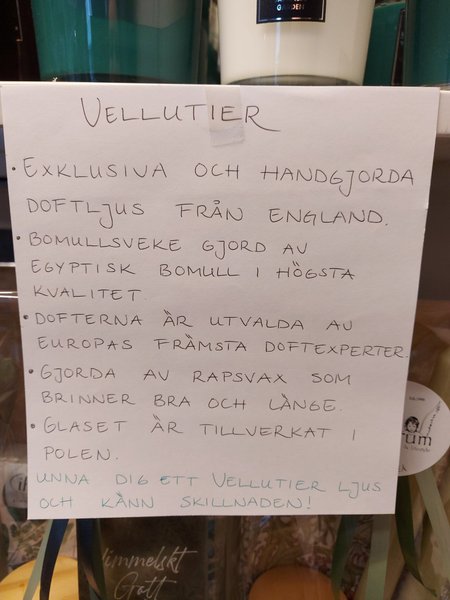 GARDEN
VELLUTIER
• EXKLUSIVA OCH HANDGJORDA
DOFTLJUS FRÅN ENGLAND.
• BOMULLSVEKE GJORD AV
EGYPTISK BOMULL I HÖGSTA
KVALITET.
• DOFTERNA ÄR UTVALDA AV
EUROPAS FRÄMSTA DOFTEXPERTER.
• GJORDA AV RAPSVAX SOM
BRINNER BRA OCH LÄNGE.
• GLASET ÄR TILLVERKAT I
POLEN.
UNNA DIG ETT VELLUTIER LJUS
OCH KÄNN SKILLNADEN!
Himmelskt
Gott